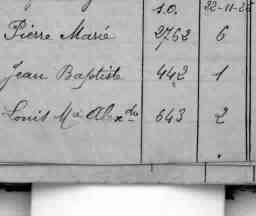 1.0. 22-11-26
Pierre Marié 2762 6
Jean Baptiste 442 1
Louis Mie Alexdre 643 2